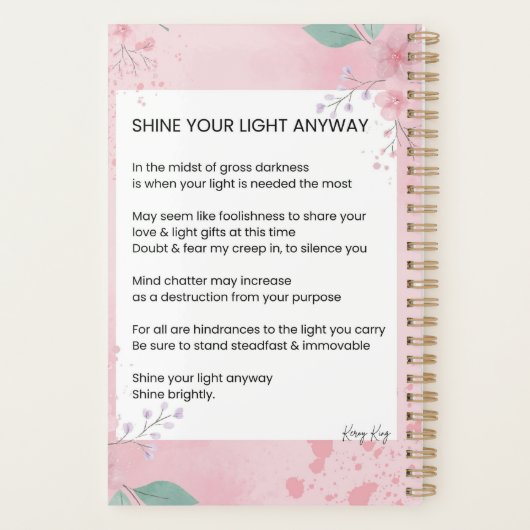 SHINE YOUR LIGHT ANYWAY
In the midst of gross darkness
is when your light is needed the most
May seem like foolishness to share your
love & light gifts at this time
Doubt & fear my creep in, to silence you
Mind chatter may increase
as a destruction from your purpose
For all are hindrances to the light you carry
Be sure to stand steadfast & immovable
Shine your light anyway
Shine brightly.
Keray King